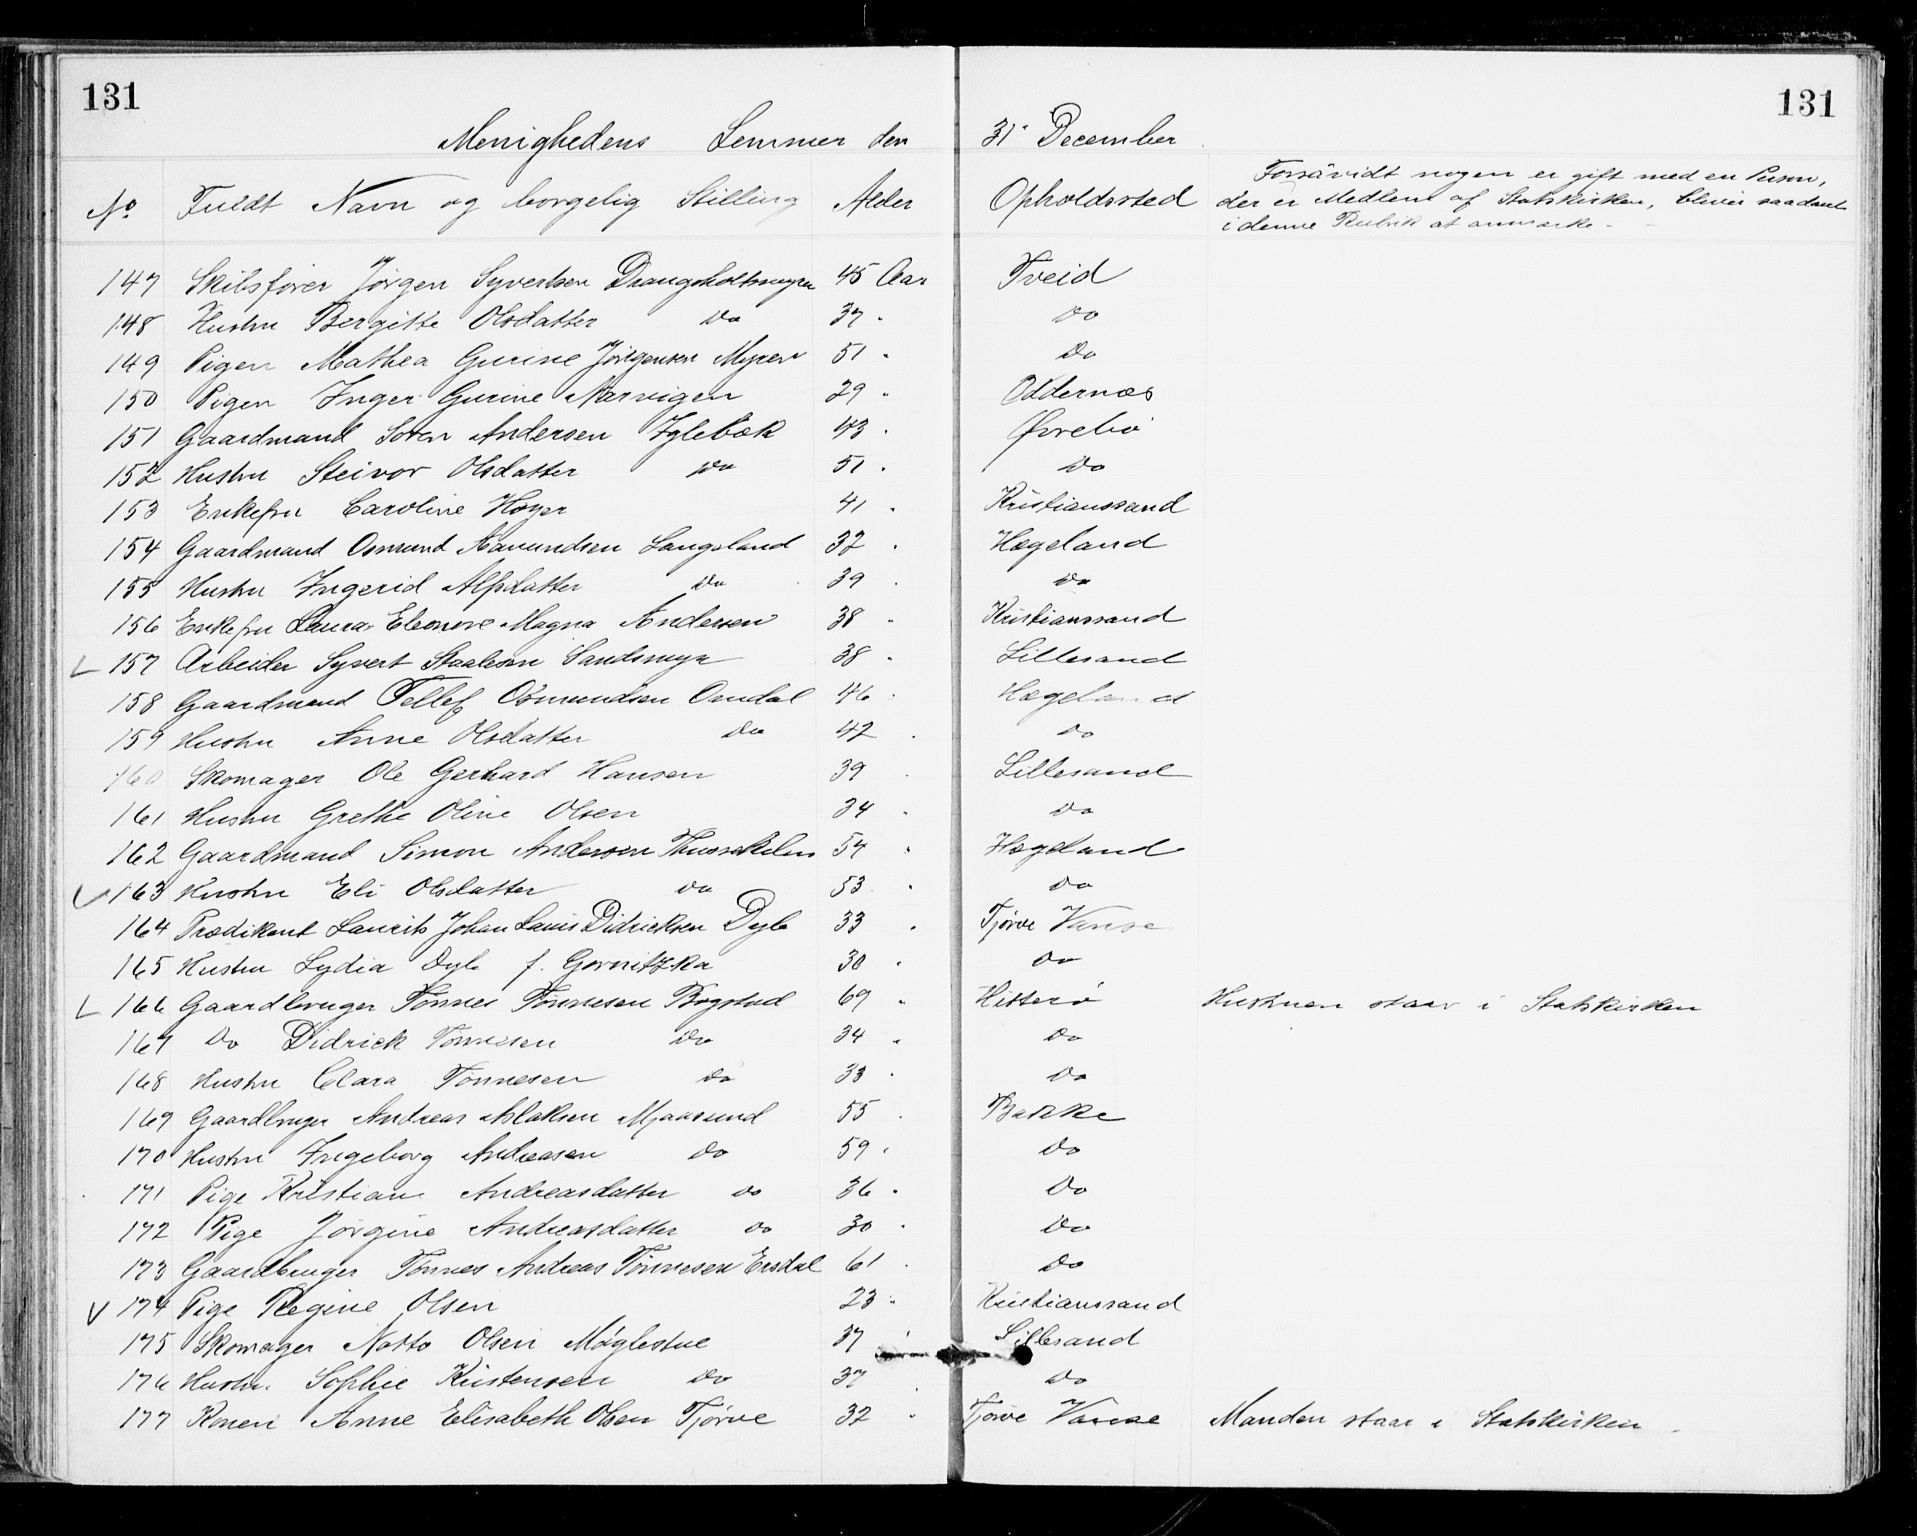 131 131
Menighedens Lemmer den 31' December
No Fuldt Navn og borgelig Stilling Alder Opholdssted Forsåvidt nogen er gift med en Person,
der er Medlem af Statskirken, bliver saadant
i denne Rubrik at anmærke
147 Skibsfører Jørgen Syvertsen Drangsholtsmyra 45 Aar Tveid
148 Hustru Bergitte Olsdatter Do 37 " Do
149 Pigen Mathea Gurine Jørgensen Myren 51 " Do
150 Pigen Inger Gurine Narvigen 29 " Oddernæs
151 Gaardmand Soren Andersen Iglebæk 43 " Øvrebø
152 Hustru Steivor Olsdatter Do 51 " Do
153 Enkefru Caroline Høyer 41 " Kristianssand
154 Gaardmand Osmund Aavundsen Langeland 32 " Hægeland
155 Hustru Ingerid Alfsdatter Do 39 " Do
156 Enkefru Laura Eleonore Magna Andersen 38 " Kristianssand
157 Arbeider Syvert Staalesen Sandsmyr 38 " Lillesand
158 Gaardmand Tellef Osmundsen Omdal 46 " Hægeland
159 Hustru Anne Olsdatter Do 42 " Do
160 Skomager Ole Gerhard Hansen 39 " Lillesand
161 Hustru Grethe Oline Olsen 34 " Do
162 Gaardmand Simon Andersen 54 " Hægeland
163 Hustru Eli Olsdatter do 53 " Do
164 Prædikant Laurits Johan Lauis Didricksen Dyb 33 " Tjørve Vanse
165 Hustru Lydia Dyb f. Gornitzka 30 " Do
166 Gaardbruger Tønnes Tønnesen Bogstad 69 " Hitterø Hustruen staar i Statskirken
167 Do Didrick Tønnesen Do 34 " Do
168 Hustru Clara Tønnesen Do 33 " Do
169 Gaardbruger Andreas Aslaksen Mjaasund 55 " Bakke
170 Hustru Ingeborg Andreasen Do 59 " Do
171 Pige Kristiane Andreasdatter do 36 " Do
172 Pige Jørgine Andreasdatter do 30 " Do
173 Gaardbruger Tønnes Andreas Tønnesen Ersdal 61 " Do
174 Pige Regine Olsen 23 " Kristianssand
175 Skomager Natto Olsen Møglestue 37 " Lillesand
176 Hustru Sophie Kristensen Do 37 " Do
177 Konen Anne Elisabeth Olsen Tjørve 32 " Tjørve Vanse Manden staar i Statskirken